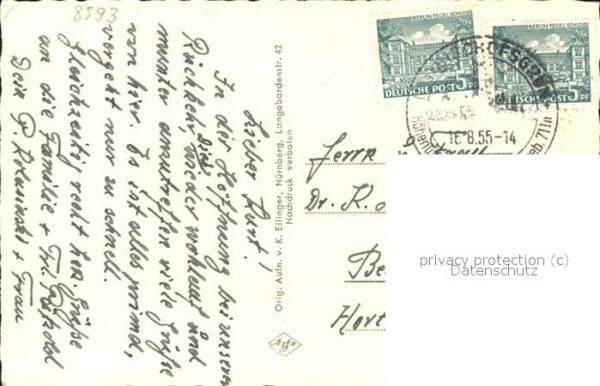 8593
Lieber Kurt!
In der Hoffnung bei unserer
Rückkehr Dich wieder wohlauf und
munter anzutreffen viele Grüße
von hier. Es ist alles prima,
vergeht nur zu schnell.
Gleichzeitig recht herz. Grüße
an die Familie + Frl.
Dein + Frau
Orig. Aufn. v. K. Ellinger, Nürnberg, Langobardenstr. 42
Nachdruck verboten
BERLIN-TEGEL-SCHLOSS
DEUTSCHE POST 5 PF
BERLIN-TEGEL-SCHLOSS
DEUTSCHE POST 5 PF
16.8.55-14
711 m
Herrn
Dr. K.
Be
Hort
privacy protection (c)
Datenschutz